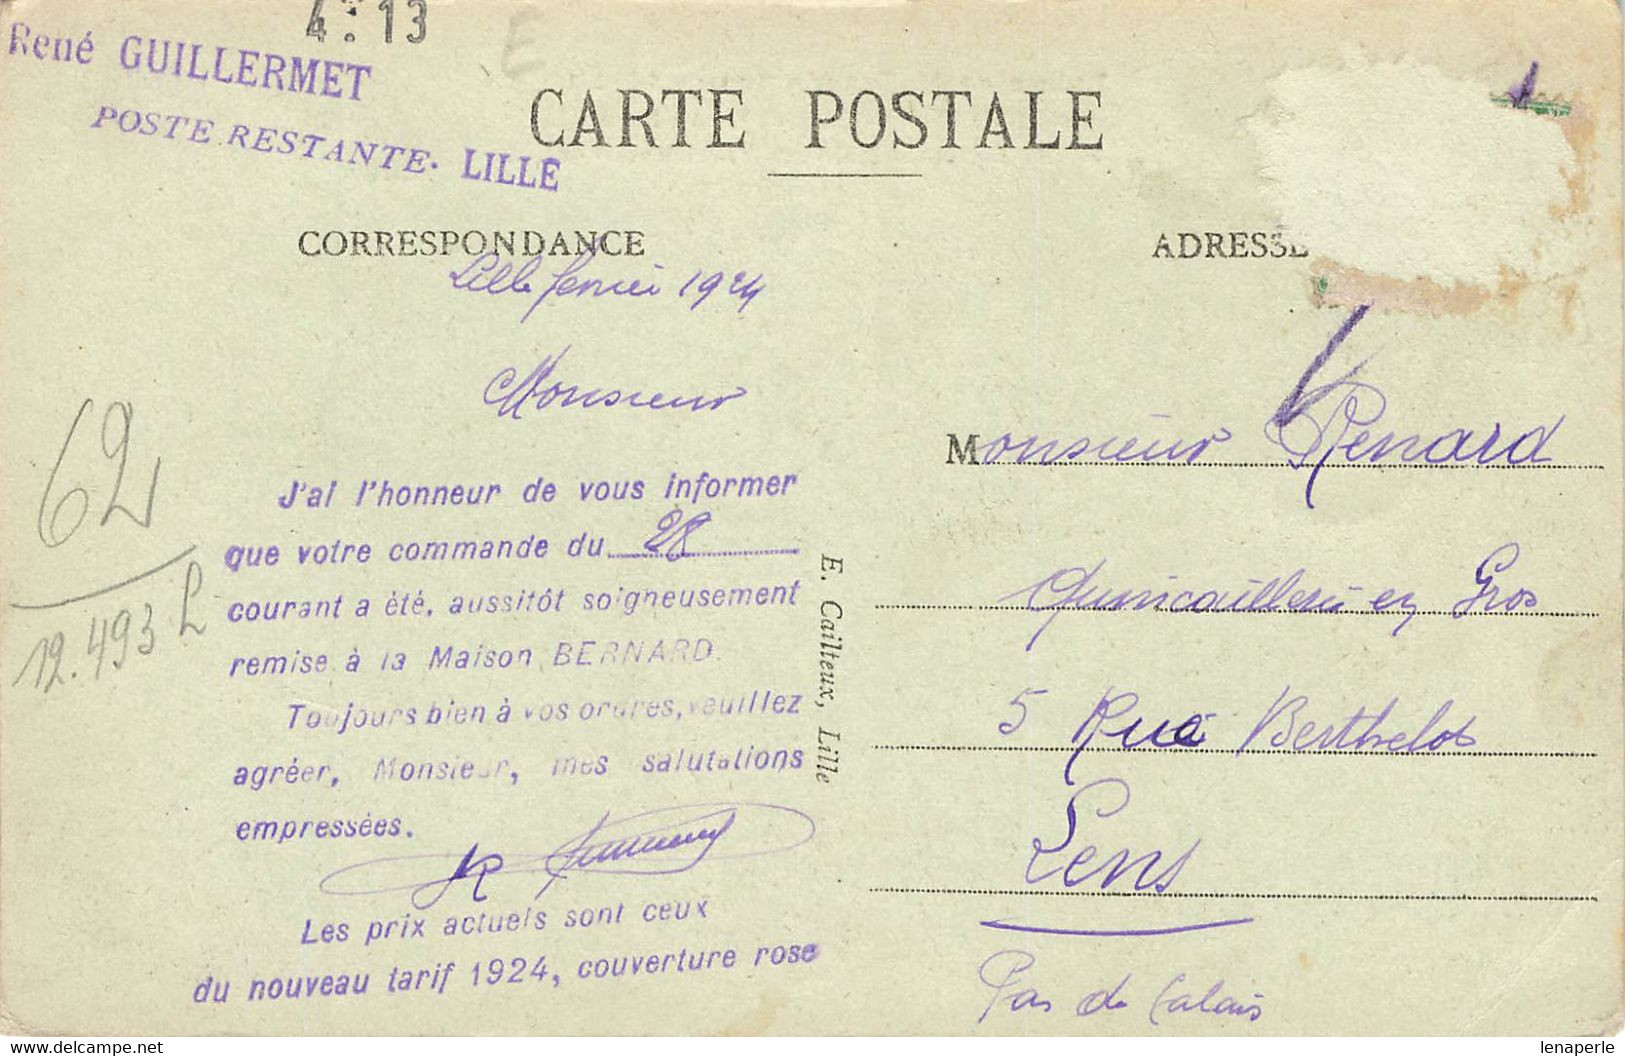 4 : 13
René GUILLERMET
POSTE RESTANTE. LILLE
E
CARTE POSTALE
CORRESPONDANCE
ADRESSE
Lille fevrier 1924
Monsieur
J'ai l'honneur de vous informer
que votre commande du 28
courant a été, aussitôt soigneusement
remise à la Maison BERNARD.
Toujours bien à vos ordres, veuillez
agréer, Monsieur, mes salutations
empressées.
Les prix actuels sont ceux
du nouveau tarif 1924, couverture rose
62
12.493 L
E. Cailteux, Lille
Monsieur Renard
Quincaillerie en Gros
5 Rue Berthelot
Lens
Pas de Calais
www.delcampe.net
lenaperle